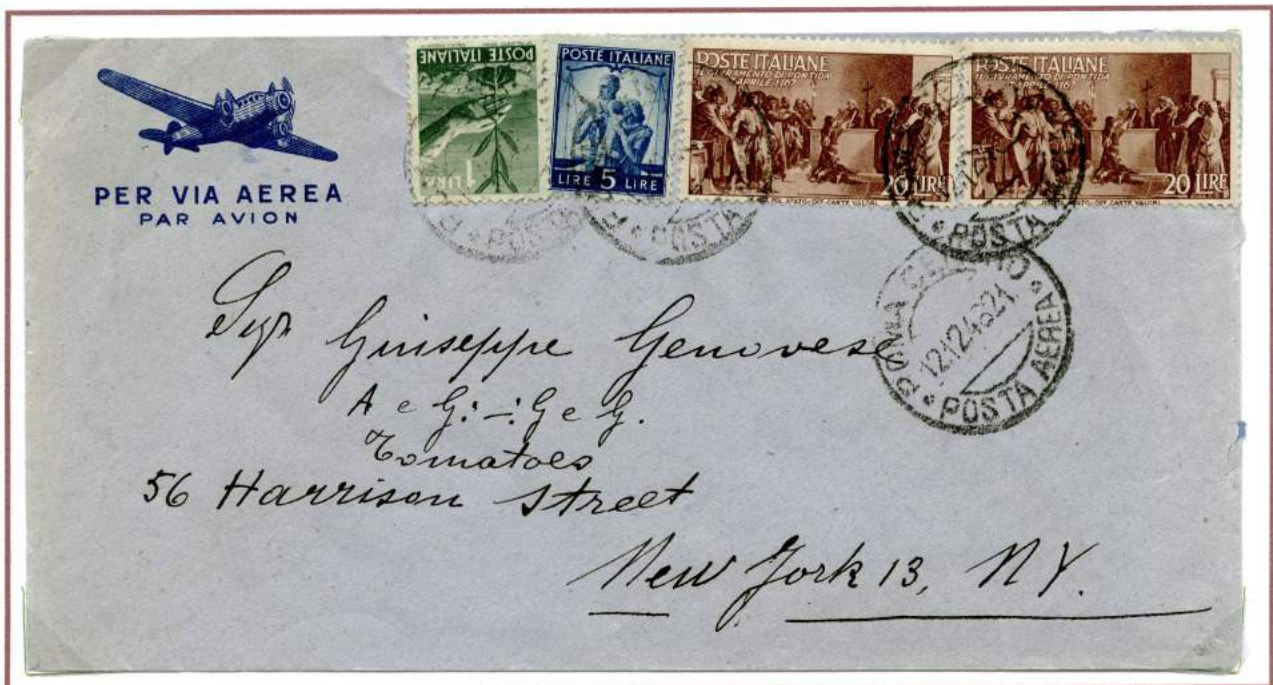 PER VIA AEREA
PAR AVION
POSTE ITALIANE
1 LIRA
POSTE ITALIANE
LIRE 5 LIRE
POSTE ITALIANE
IL GIVRAMENTO DI PONTIDA
APRILE·1167
20 LIRE
POSTE ITALIANE
IL GIVRAMENTO DI PONTIDA
APRILE·1167
20 LIRE
POSTA
POSTA
POSTA
12.12.46 21
POSTA AEREA
Sigr Giuseppe Genovese
A e G. -:- G e G.
Tomatoes
56 Harrison Street
New York 13, NY.